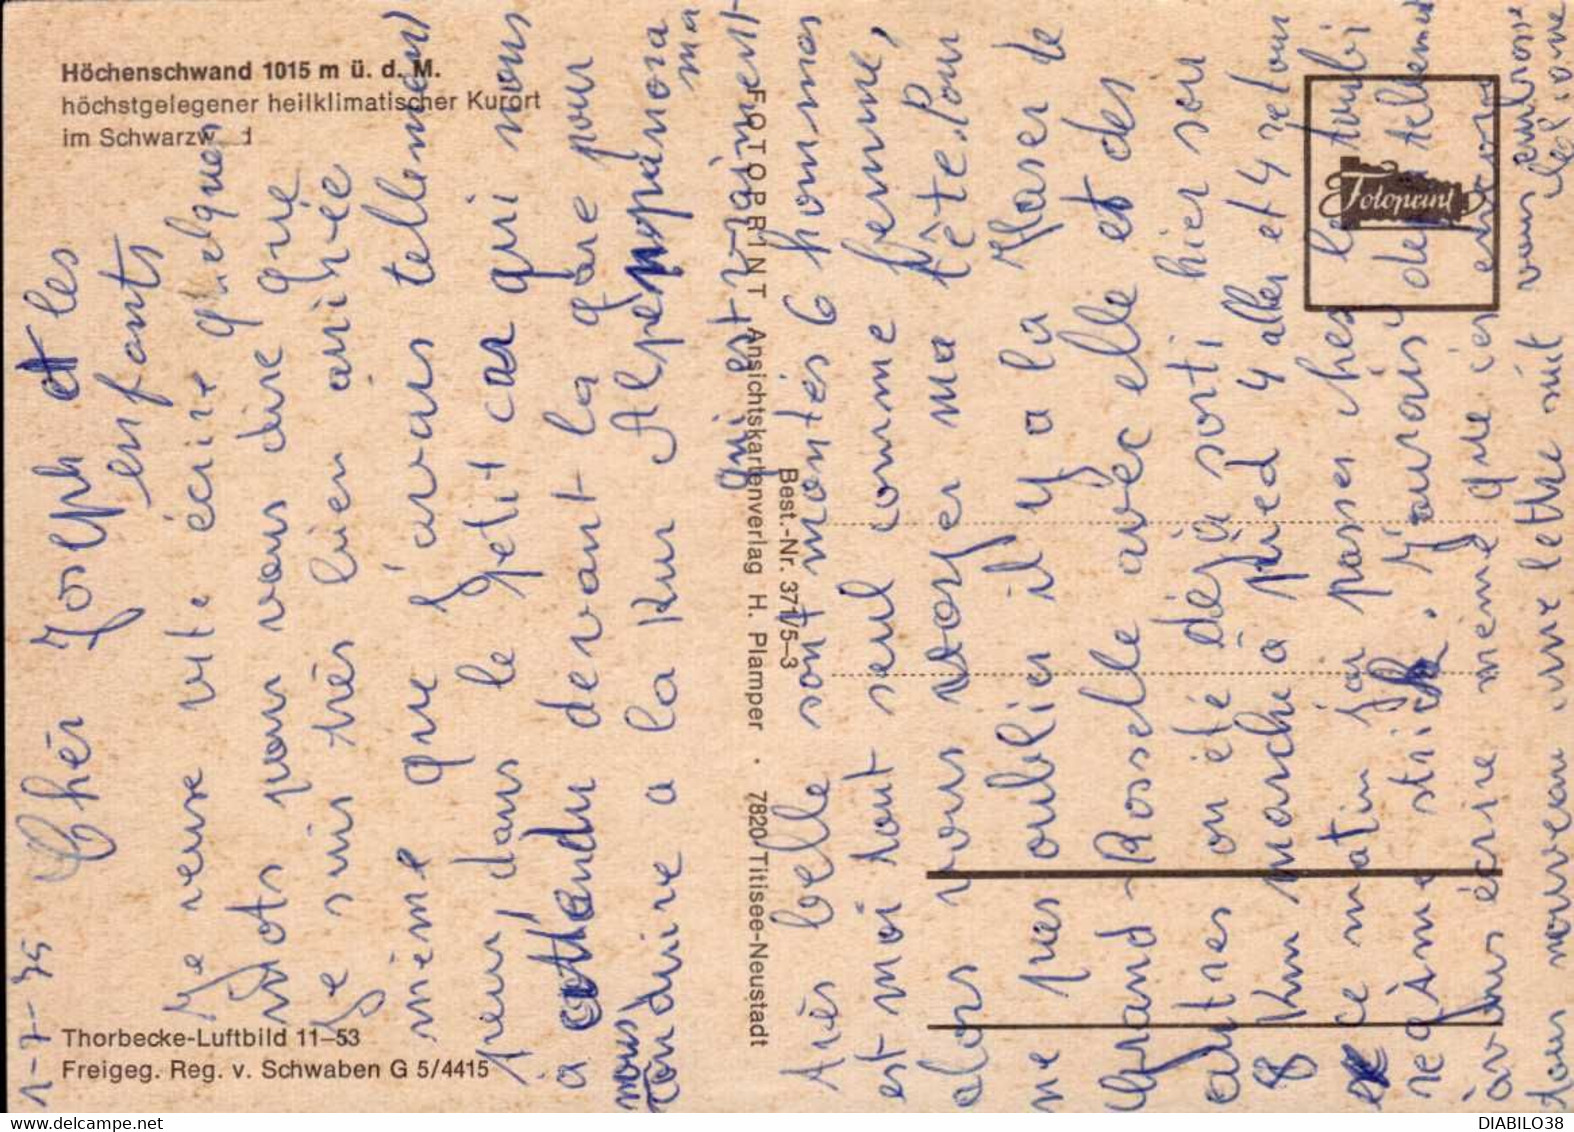 Höchenschwand 1015 m ü. d. M.
höchstgelegener heilklimatischer Kurort
im Schwarzw d
Thorbecke-Luftbild 11–53
Freigeg. Reg. v. Schwaben G 5/4415
FOTOPRINT Ansichtskartenverlag H. Plamper · 7820 Titisee-Neustadt
Best.-Nr. 371/5–3
Fotoprint
1-7-75 Chér Joseph et les
enfants
Je vite écrire quelques
mots pour vous dire que
Je suis très bien arivée
même que j'avais tellement
peur dans le petit car qui nous
a attandu devant la gare pour
nous conduire a la Kur Alpenpanorama
qui est vraiment
très belle sont montés 6 hommes
et moi tout seul comme femme,
alors vous voyer ma tête. Pour
ne pas oublier il y a la Maser de
Grand-Rosselle avéc elle et des
autres on été déjà sorti hier sou
8 Km marche à pied 4 aller et 4 retour
ce matin passer chez le toubi
regime strich. J'aurais dejà tellement
à vous écrire même que ces encore
tous nouveau une lettre suit vous embrasse